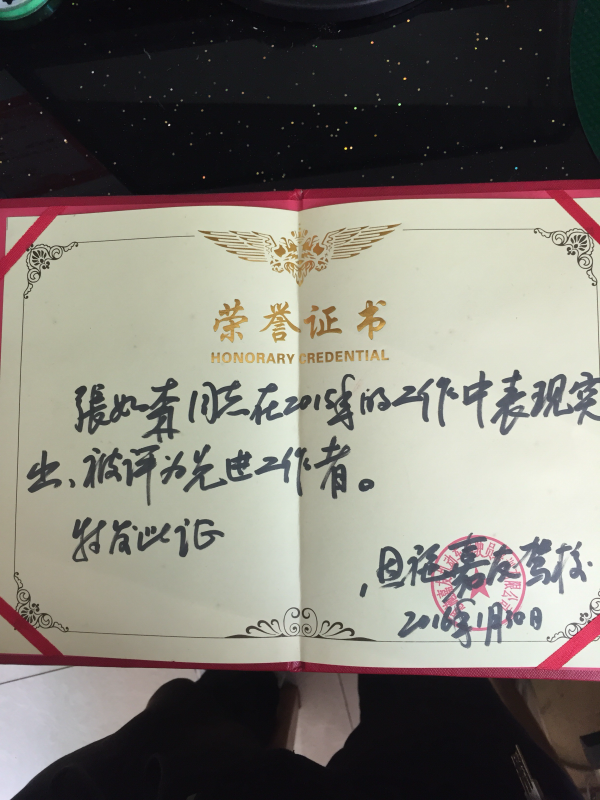 荣誉证书
HONORARY CREDENTIAL
張如奔同志在2015年的工作中表现突
出、被评为先进工作者。
特发此证
恩施嘉友驾校
2016年1月30日